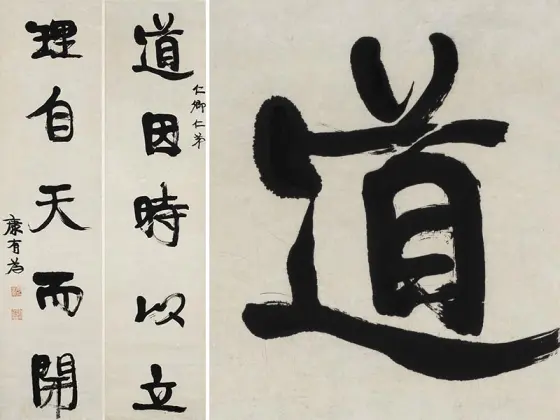 道因時以立
仁卿仁弟
理自天而開
康有為
道